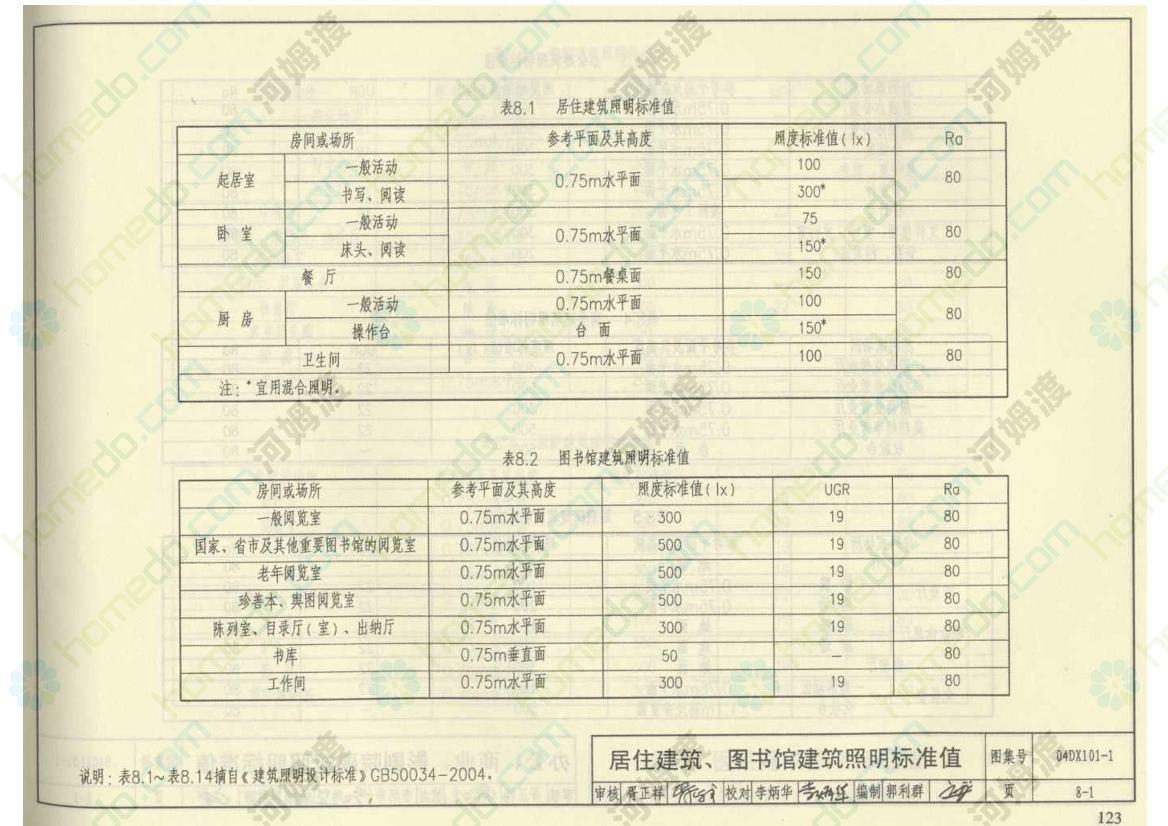 表8.1 居住建筑照明标准值
房间或场所 参考平面及其高度 照度标准值(lx) Ra
起居室 一般活动 0.75m水平面 100 80
书写、阅读 300*
卧 室 一般活动 0.75m水平面 75 80
床头、阅读 150*
餐 厅 0.75m餐桌面 150 80
厨 房 一般活动 0.75m水平面 100 80
操作台 台 面 150*
卫生间 0.75m水平面 100 80
注：*宜用混合照明。
表8.2 图书馆建筑照明标准值
房间或场所 参考平面及其高度 照度标准值(lx) UGR Ra
一般阅览室 0.75m水平面 300 19 80
国家、省市及其他重要图书馆的阅览室 0.75m水平面 500 19 80
老年阅览室 0.75m水平面 500 19 80
珍善本、舆图阅览室 0.75m水平面 500 19 80
陈列室、目录厅(室)、出纳厅 0.75m水平面 300 19 80
书库 0.75m垂直面 50 — 80
工作间 0.75m水平面 300 19 80
说明：表8.1~表8.14摘自《建筑照明设计标准》GB50034-2004。
居住建筑、图书馆建筑照明标准值 图集号 04DX101-1
审核 胥正祥 校对 李炳华 李炳华 编制 郭利群 页 8-1
123
homedo.com 河姆渡